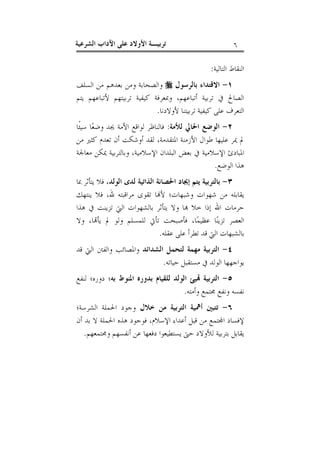 ٦
تربيـــة الأولاد على الآداب الشرعية
النقاط التالية:
١- الاقتداء بالرسول ﷺ والصحابة ومن بعدهم من السلف
الصالح في تربية أتباعهم، وبمعرفة كيفية تربيتهم لأتباعهم يتم
التعرف على كيفية تربيتنا لأولادنا.
٢- الوضع الحالي للأمة: فالناظر لواقع الأمة يجد وضعًا سيئًا
لم يمر عليها طوال الأزمنة المتقدمة، لقد أوشكت أن تعدم كثير من
المبادئ الإسلامية في بعض البلدان الإسلامية، وبالتربية يمكن معالجة
هذا الوضع.
٣- بالتربية يتم إيجاد الحصانة الذاتية لدى الولد، فلا يتأثر بما
يقابله من شهوات وشبهات؛ لأنها تقوى مراقبته لله، فلا ينتهك
حرمات الله إذا خلا بها ولا يتأثر بالشهوات التي تزينت في هذا
العصر تزينًا عظيمًا، فأصبحت تأتي للمسلم ولو لم يأتها، ولا
بالشبهات التي قد تطرأ على عقله.
٤- التربية مهمة لتحمل الشدائد والمصائب والفتن التي قد
يواجهها الولد في مستقبل حياته.
٥- التربية تهيئ الولد للقيام بدوره المنوط به؛ دوره؛ لنفع
نفسه ونفع مجتمع وأمته.
٦- تتبين أهمية التربية من خلال وجود الحملة الشرسة؛
لإفساد المجتمع من قبل أعداء الإسلام، فوجود هذه الحملة لا بد أن
يقابل بتربية للأولاد حتى يستطيعوا دفعها عن أنفسهم ومجتمعهم.